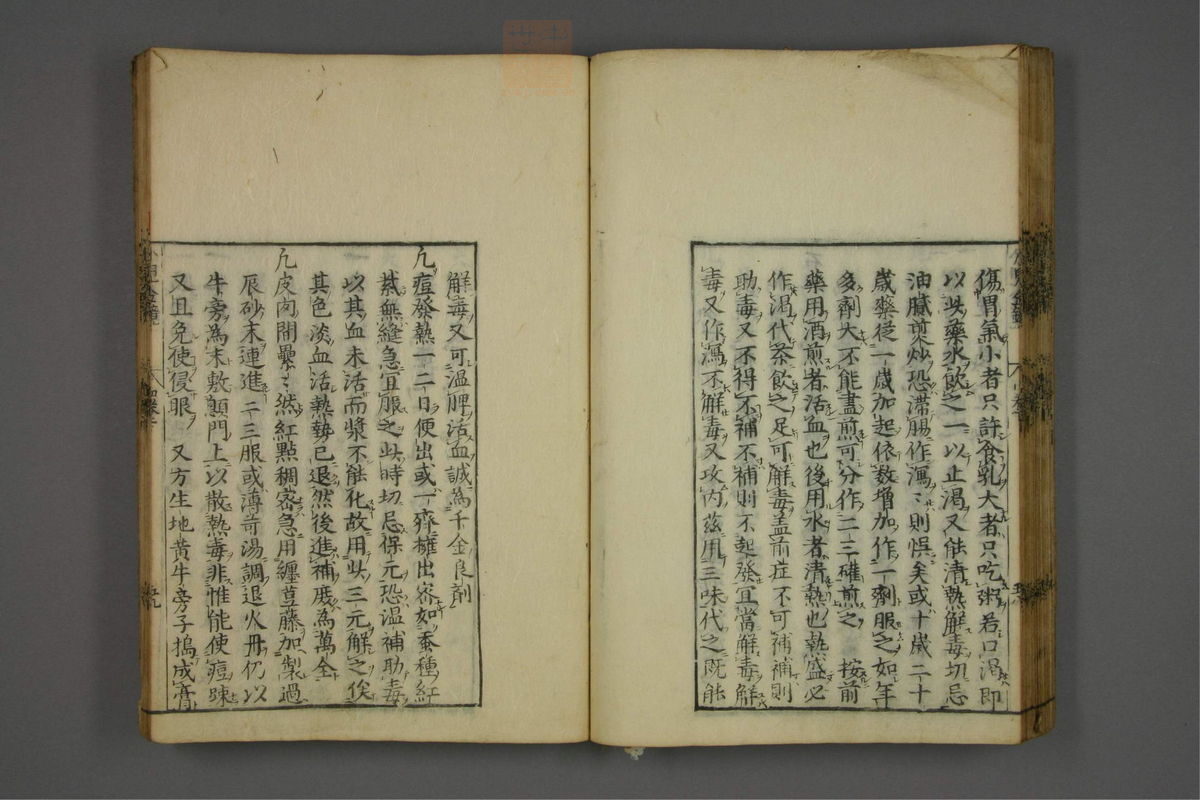 傷胃氣小者只許食乳大者只吃粥若口渴即
以此藥水飲之一以止渴又能清熱解毒切忌
油膩煎炒恐滞腸作瀉〻則悞矣或十歲二十
歲藥從一歲加起依数增加作一劑服之如年
多劑大不能盡煎可分作二三礶煎之 按前
藥用酒煎者活血也後用水者清熱也熱盛必
作渴代茶飲之足可解毒盖前症不可補補則
助毒又不得不補不補則不起發冝當解毒解
毒又作瀉不解毒又攻内兹用三味代之既能
解毒又可温脾活血誠為千金良劑
凢痘發熱一二日便出或一齊擁出宻如蚕種紅
紫無縫急冝服之此時切忌保元恐温補助毒
以其血未活而漿不能化故用此三元解之俟
其色淡血活熱勢已退然後進補厎為萬全
凢皮肉間壘〻然紅點稠宻急用纏荳藤加製過
辰砂末連進二三服或薄荷湯調退火丹仍以
牛旁為末敷顖門上以散熱毒非惟能使痘踈
又且免使侵眼 又方生地黄牛旁子搗成膏